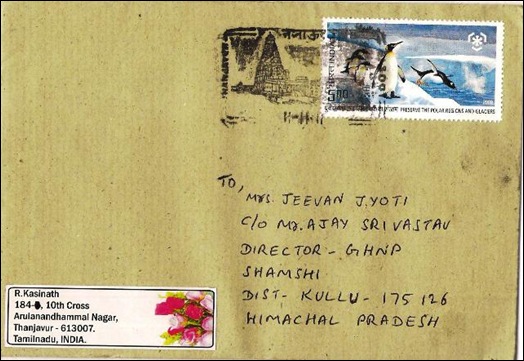 5.00
PRESERVE THE POLAR REGIONS AND GLACIERS
To,
Mrs. JEEVAN JYOTI
C/O Mr. AJAY SRIVASTAV
DIRECTOR - GHNP
SHAMSHI
DIST - KULLU - 175 126
HIMACHAL PRADESH
R.Kasinath
184- , 10th Cross
Arulanandhammal Nagar,
Thanjavur - 613007.
Tamilnadu, INDIA.